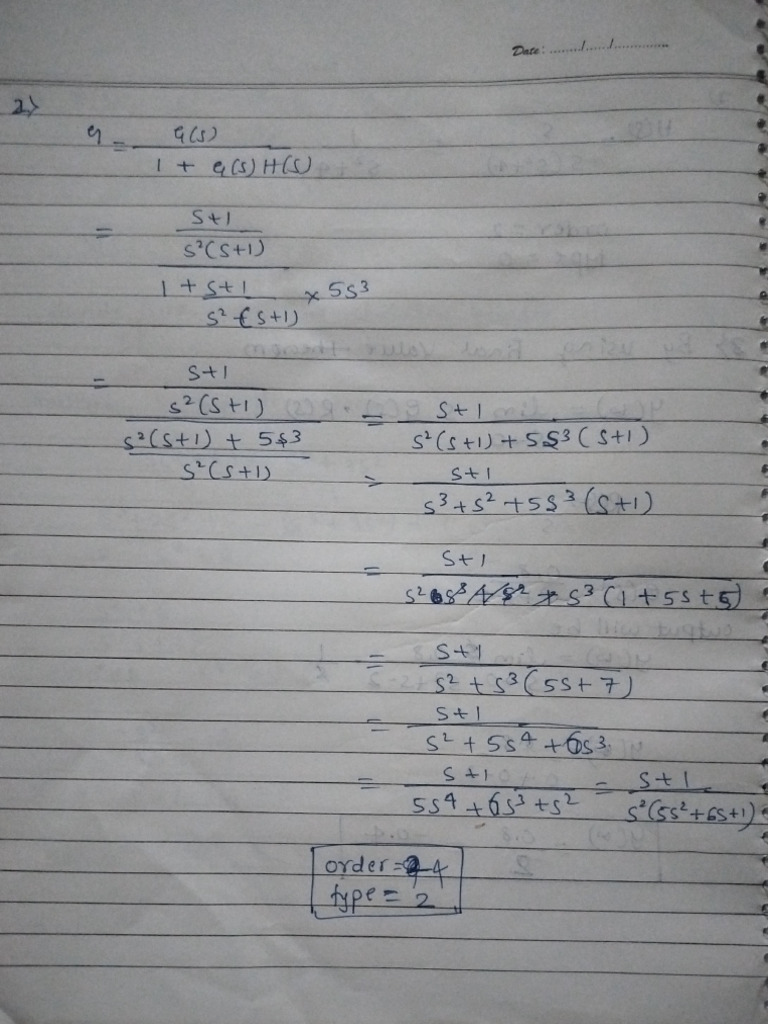 Date: ......../....../..............
2>
G = G(S) / 1 + G(S) H(S)
= (S+1 / S²(S+1)) / (1 + S+1 / S²(S+1) × 5S³)
= (S+1 / S²(S+1)) / (S²(S+1) + 5S3 / S²(S+1)) = S+1 / S²(S+1) + 5S³(S+1)
= S+1 / S³+S²+5S³(S+1)
= S+1 / S² + S³(1+5S+5)
= S+1 / S² + S³(5S+7)
= S+1 / S² + 5S⁴ + 6S³
= S+1 / 5S⁴ + 6S³ + S² = S+1 / S²(5S²+6S+1)
order = 4
type = 2